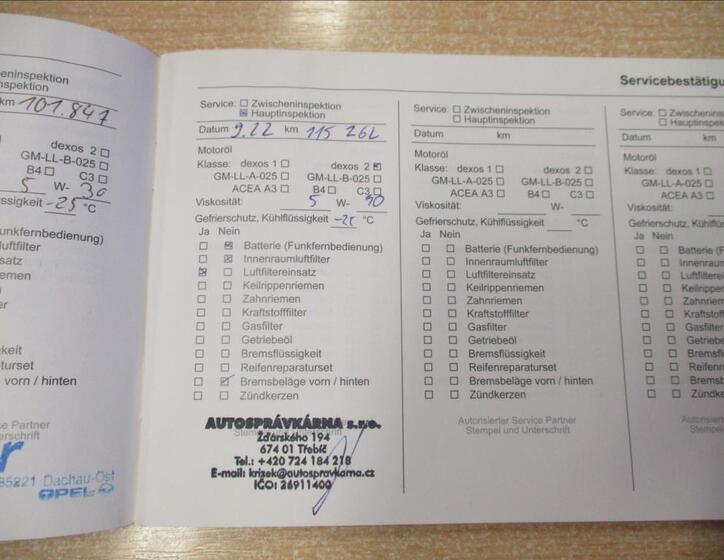 Zwischeninspektion
Hauptinspektion
km 101.847
dexos 2
GM-LL-B-025
B4 C3
5 W- 30
-25 °C
Stempel und Unterschrift
85221 Dachau-Ost
OPEL
Servicebestätigu
Service: Zwischeninspektion
Hauptinspektion
Datum 9.22 km 115 262
Motoröl
Klasse: dexos 1 dexos 2
GM-LL-A-025 GM-LL-B-025
ACEA A3 B4 C3
Viskosität: 5 W- 30
Gefrierschutz, Kühlflüssigkeit -25 °C
Ja Nein
Batterie (Funkfernbedienung)
Innenraumluftfilter
Luftfiltereinsatz
Keilrippenriemen
Zahnriemen
Kraftstofffilter
Gasfilter
Getriebeöl
Bremsflüssigkeit
Reifenreparaturset
Bremsbeläge vorn / hinten
Zündkerzen
AUTOSPRÁVKÁRNA s.r.o.
Žďárského 194
674 01 Třebíč
Tel.: +420 724 184 218
E-mail: krizek@autospravkarna.cz
IČO: 26911400
Service: Zwischeninspektion
Hauptinspektion
Datum km
Motoröl
Klasse: dexos 1 dexos 2
GM-LL-A-025 GM-LL-B-025
ACEA A3 B4 C3
Viskosität: W-
Gefrierschutz, Kühlflüssigkeit °C
Ja Nein
Batterie (Funkfernbedienung)
Innenraumluftfilter
Luftfiltereinsatz
Keilrippenriemen
Zahnriemen
Kraftstofffilter
Gasfilter
Getriebeöl
Bremsflüssigkeit
Reifenreparaturset
Bremsbeläge vorn / hinten
Zündkerzen
Autorisierter Service Partner
Stempel und Unterschrift
Service: Zwischeninsp
Hauptinspekt
Datum km
Motoröl
Klasse: dexos 1
GM-LL-A-025
ACEA A3
Viskosität:
Gefrierschutz, Kühlflüssigke
Ja Nein
Batterie (Fun
Innenrauml
Luftfilterein
Keilrippenri
Zahnriemen
Kraftstofffilt
Gasfilter
Getriebeöl
Bremsflüss
Reifenrepa
Bremsbelä
Zündkerze